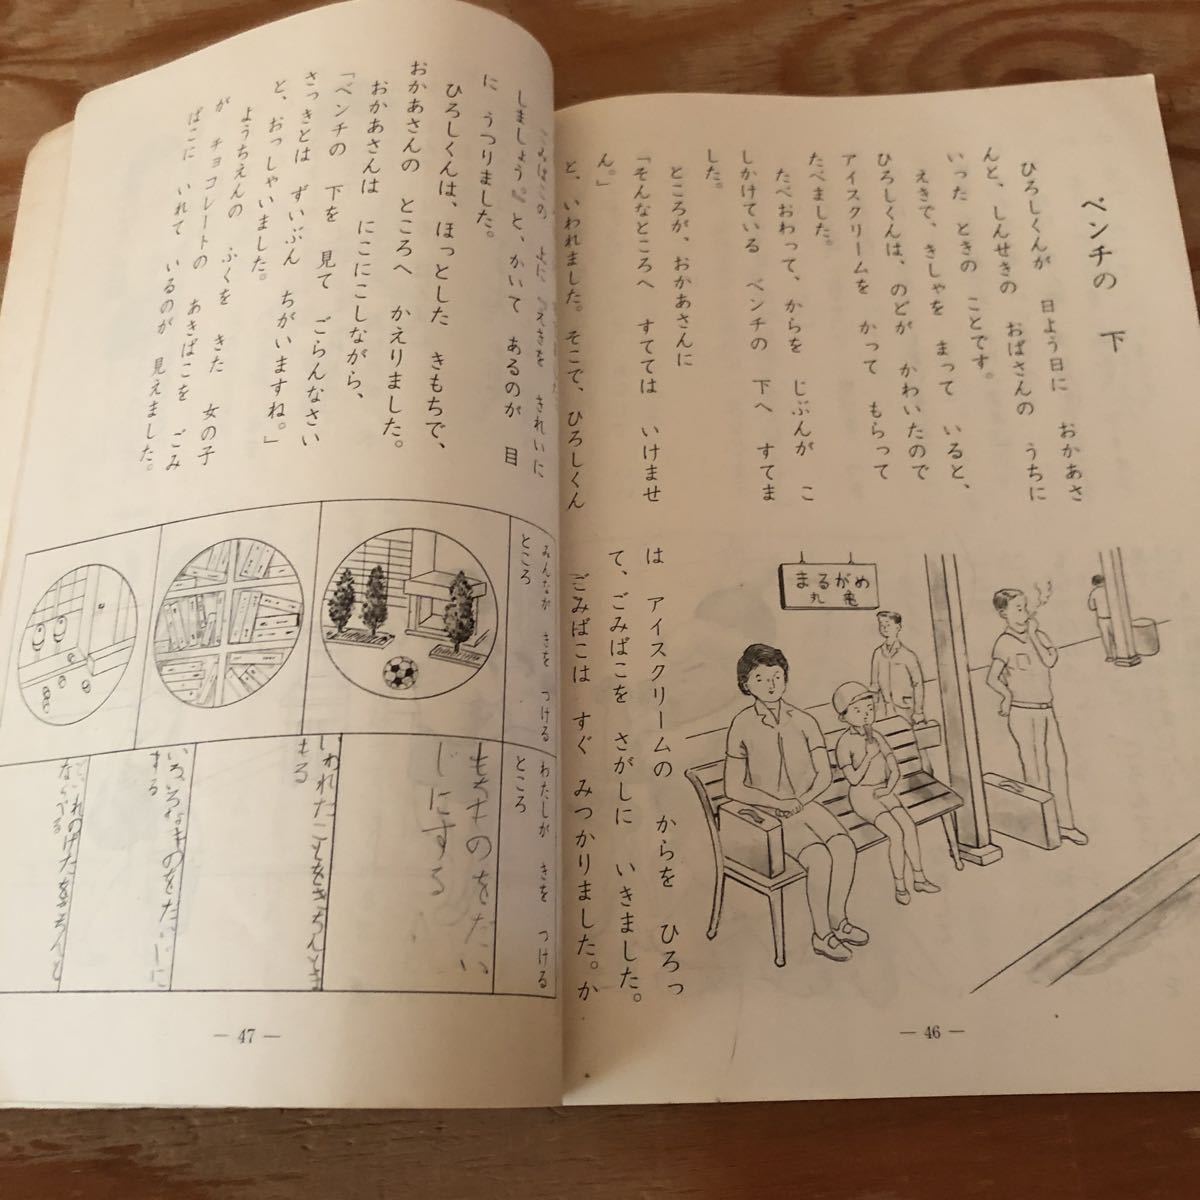 ベンチの　下
ひろしくんが　日よう日に　おかあさ
んと、しんせきの　おばさんの　うちに
いった　ときの　ことです。
えきで、きしゃを　まって　いると、
ひろしくんは、のどが　かわいたので
アイスクリームを　かって　もらって
たべました。
たべおわって、からを　じぶんが　こ
しかけている　ベンチの　下へ　すてま
した。
ところが、おかあさんに
「そんなところへ　すてては　いけませ
ん。」
と、いわれました。そこで、ひろしくん
は　アイスクリームの　からを　ひろっ
て、ごみばこを　さがしに　いきました。
ごみばこは　すぐ　みつかりました。か
まるがめ
丸亀
— 46 —
ごみばこの　上に『えきを　きれいに
しましょう。』と、かいて　あるのが　目
に　うつりました。
ひろしくんは、ほっとした　きもちで、
おかあさんの　ところへ　かえりました。
おかあさんは　にこにこしながら、
「ベンチの　下を　見て　ごらんなさい
さっきとは　ずいぶん　ちがいますね。」
と、おっしゃいました。
ようちえんの　ふくを　きた　女の子
が　チョコレートの　あきばこを　ごみ
ばこに　いれて　いるのが　見えました。
みんなが　きを　つける
ところ
わたしが　きを　つける
ところ
じにする
いわれたことをきちんとま
もる
いろいろなものをたいじに
する
ならべる
— 47 —